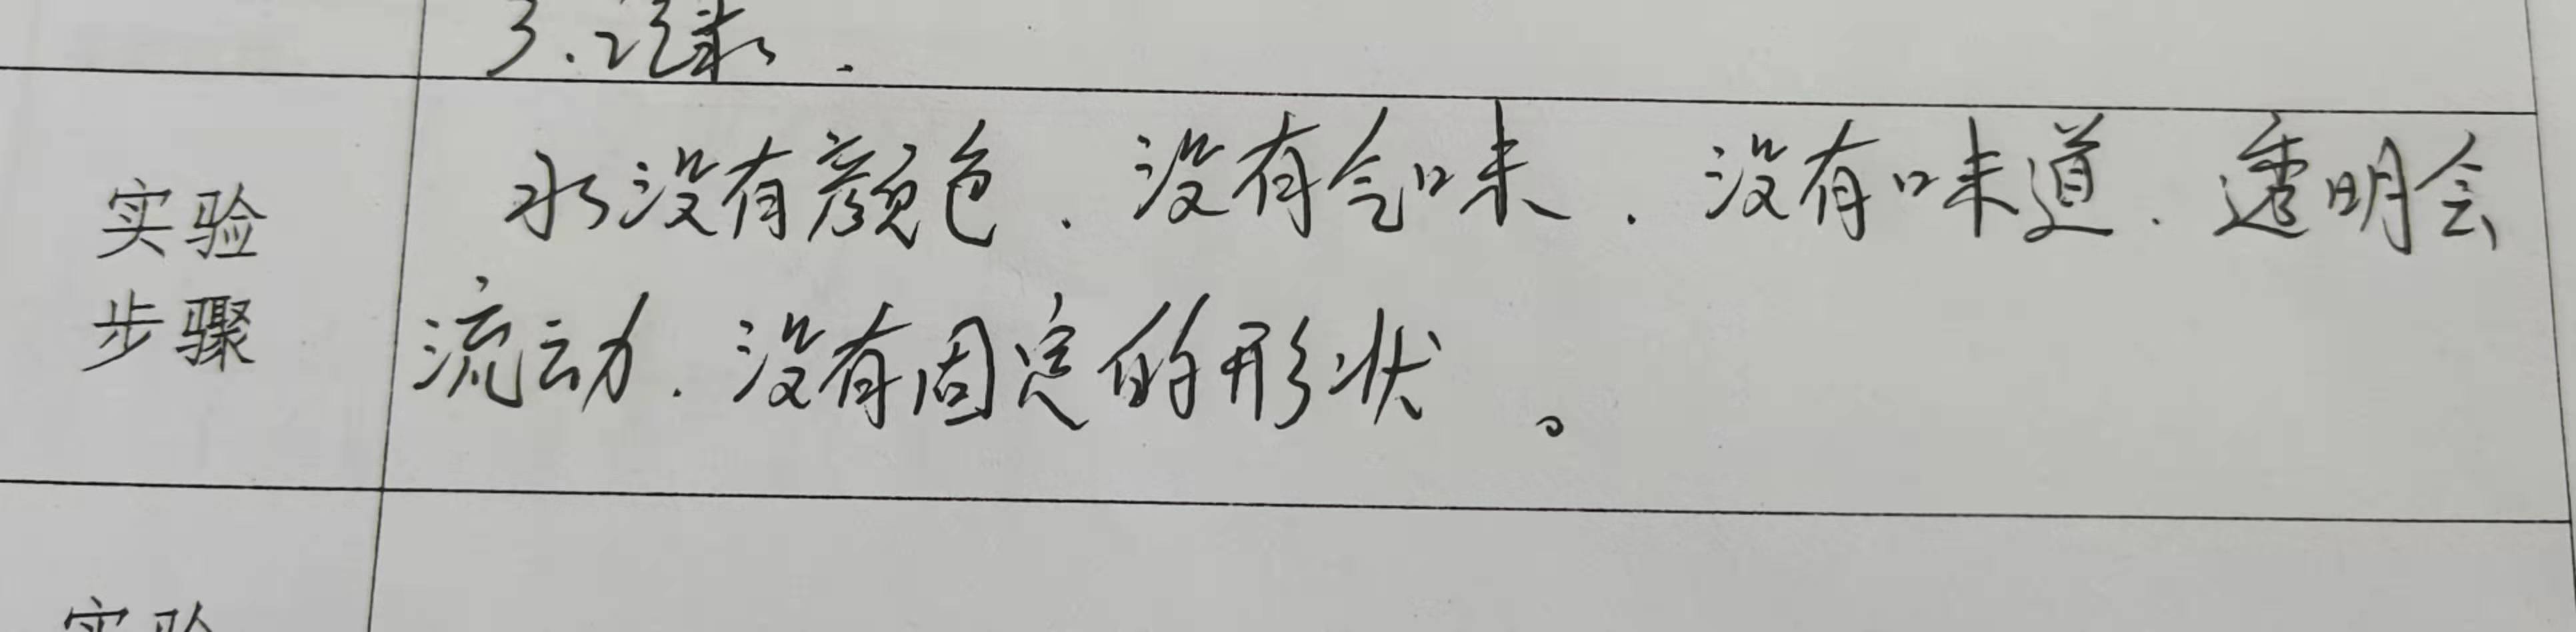 3.记录.
实验
步骤
水没有颜色.没有气味.没有味道.透明会
流动.没有固定的形状。
实验